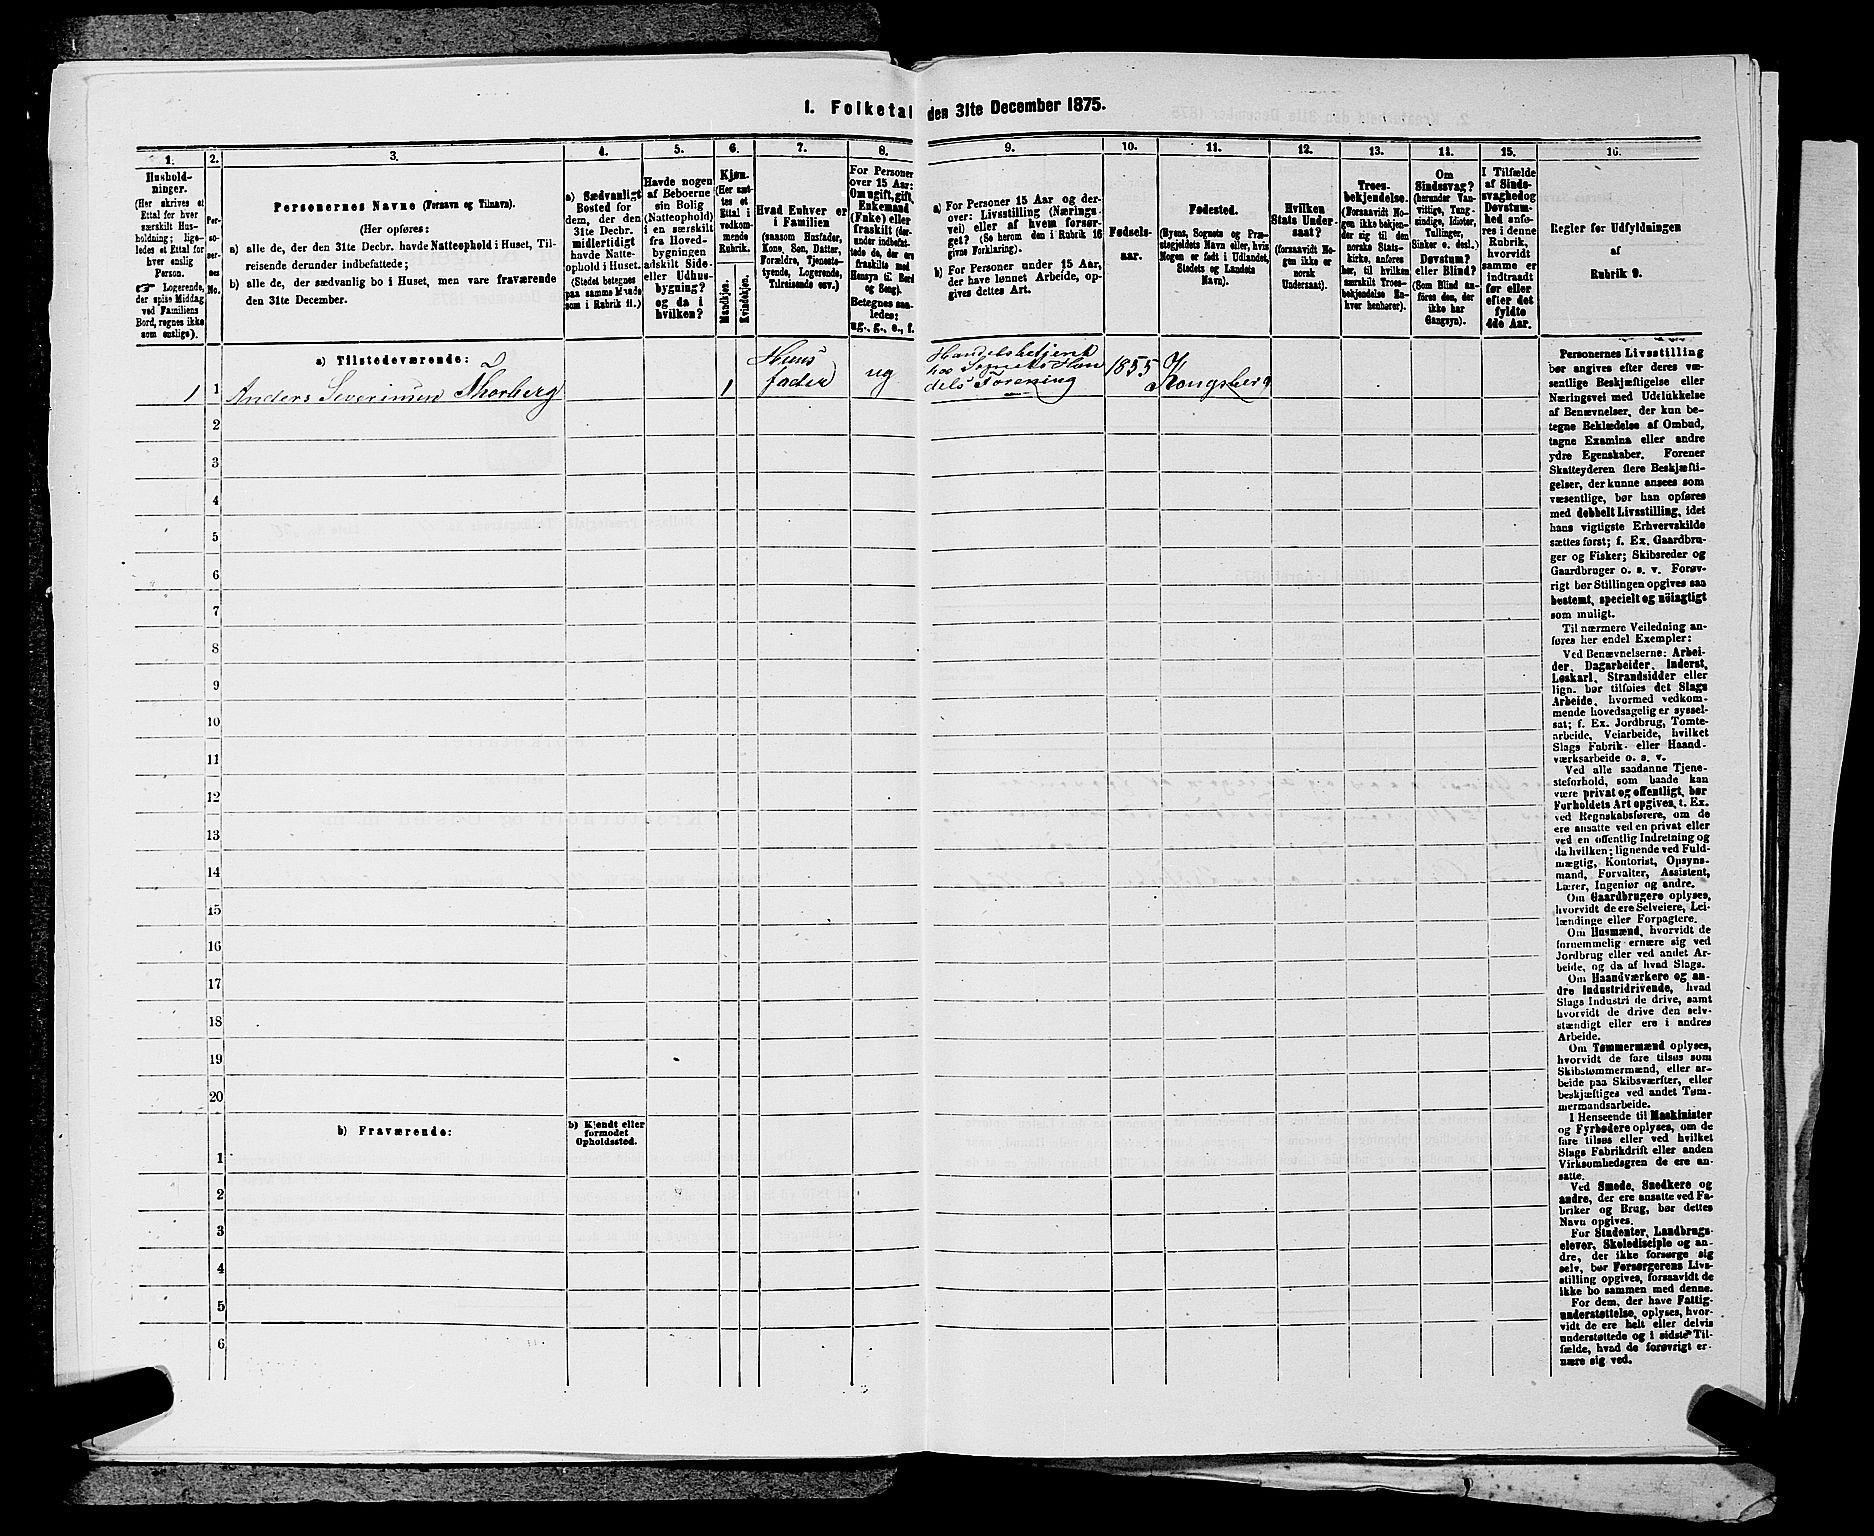 1. Folketal den 31te December 1875.
1.
2.
3.
4.
5.
6.
7.
8.
9.
10.
11.
12.
13.
14.
15.
16.
Hushold-
ninger.
(Her skrives et
Ettal for hver
særskilt Hus-
holdning; lige-
ledes et Ettal for
hver enslig
Person.
☞ Logerende,
der spise Middag
ved Familiens
Bord, regnes ikke
som enslige).
Per-
so-
ner-
nes
No.
Personernes Navne (Fornavn og Tilnavn).
(Her opføres:
a) alle de, der den 31te Decbr. havde Natteophold i Huset, Til-
reisende derunder indbefattede;
b) alle de, der sædvanlig bo i Huset, men vare fraværende
den 31te December.
a) Sædvanligt
Bosted for
dem, der den
31te Decbr.
midlertidigt
havde Natte-
ophold i Huset.
(Stedet betegnes
paa samme Maade
som i Rubrik 11.)
Havde nogen
af Beboerne
sin Bolig
(Natteophold)
i en særskilt
fra Hoved-
bygningen
adskilt Side-
eller Udhus-
bygning?
og da i
hvilken?
Kjøn.
(Her sæt-
tes et
Ettal i
vedkom-
mende
Rubrik.
Mandkjøn.
Kvindekjøn.
Hvad Enhver er
i Familien
(saasom Husfader,
Kone, Søn, Datter,
Forældre, Tjeneste-
tyende, Logerende,
Tilreisende osv.)
For Personer
over 15 Aar:
Om ugift, gift,
Enkemand
(Enke) eller
fraskilt (der-
under indbefat-
tede de, der ere
fraskilte med
Hensyn til Bord
og Seng).
Betegnes saa-
ledes:
ug., g., e., f.
a) For Personer 15 Aar og der-
over: Livsstilling (Nærings-
vei) eller af hvem forsør-
get? (Se herom den i Rubrik 16
givne Forklaring).
b) For Personer under 15 Aar,
der have lønnet Arbeide, op-
gives dettes Art.
Fødsels-
aar.
Fødested.
(Byens, Sognets og Præ-
stegjeldets Navn eller, hvis
Nogen er født i Udlandet,
Stedets og Landets
Navn).
Hvilken
Stats Under-
saat?
(forsaavidt No-
gen ikke er
norsk
Undersaat).
Troes-
bekjendelse.
(Forsaavidt No-
gen ikke bekjen-
der sig til den
norske Stats-
kirke, anføres
her, til hvilken
særskilt Troes-
bekjendelse En-
hver henhører).
Om
Sindssvag?
(herunder Van-
vittige, Tung-
sindige, Idioter,
Tullinger,
Sinker o. desl.)
Døvstum?
eller Blind?
(Som Blind an-
føres den, der
ikke har
Gangsyn).
I Tilfælde
af Sinds-
svaghed og
Døvstum-
hed anfø-
res i denne
Rubrik,
hvorvidt
samme er
indtraadt
før eller
efter det
fyldte
4de Aar.
Regler for Udfyldningen
af
Rubrik 9.
a) Tilstedeværende:
1
1
Anders Severinsen Thorberg
1
Huus
fader
ug
Handelsbetjent
hos Sognets Han
dels Forening
1855
Kongsberg
2
3
4
5
6
7
8
9
10
11
12
13
14
15
16
17
18
19
20
b) Fraværende:
b) Kjendt eller
formodet
Opholdssted.
1
2
3
4
5
6
Personernes Livsstilling
bør angives efter deres væ-
sentlige Beskjæftigelse eller
Næringsvei med Udelukkelse
af Benævnelser, der kun be-
tegne Beklædelse af Ombud,
tagne Examina eller andre
ydre Egenskaber. Forener
Skatteyderen flere Beskjæfti-
gelser, der kunne ansees som
væsentlige, bør han opføres
med dobbelt Livsstilling, idet
hans vigtigste Erhvervskilde
sættes først; f. Ex. Gaardbru-
ger og Fisker; Skibsreder og
Gaardbruger o. s. v. Forøv-
rigt bør Stillingen opgives saa
bestemt, specielt og nøiagtigt
som muligt.
Til nærmere Veiledning an-
føres her endel Exempler:
Ved Benævnelserne: Arbei-
der, Dagarbeider, Inderst,
Løskarl, Strandsidder eller
lign. bør tilføies det Slags
Arbeide, hvormed vedkom-
mende hovedsagelig er syssel-
sat; f. Ex. Jordbrug, Tomte-
arbeide, Veiarbeide, hvilket
Slags Fabrik- eller Haand-
værksarbeide o. s. v.
Ved alle saadanne Tjene-
steforhold, som baade kan
være privat og offentligt, bør
Forholdets Art opgives, t. Ex.
ved Regnskabsførere, om de
ere ansatte ved en privat eller
ved en offentlig Indretning og
da hvilken; lignende ved Fuld-
mægtig, Kontorist, Opsyns-
mand, Forvalter, Assistent,
Lærer, Ingeniør og andre.
Om Gaardbrugere oplyses,
hvorvidt de ere Selveiere, Lei-
lændinge eller Forpagtere.
Om Husmænd, hvorvidt de
fornemmelig ernære sig ved
Jordbrug eller ved andet Ar-
beide, og da af hvad Slags.
Om Haandværkere og an-
dre Industridrivende, hvad
Slags Industri de drive, samt
hvorvidt de drive den selv-
stændigt eller ere i andres
Arbeide.
Om Tømmermænd oplyses,
hvorvidt de fare tilsøs som
Skibstømmermænd, eller ar-
beide paa Skibsværfter, eller
beskjæftiges ved andet Tøm-
mermandsarbeide.
I Henseende til Maskinister
og Fyrbødere oplyses, om de
fare tilsøs eller ved hvilket
Slags Fabrikdrift eller anden
Virksomhedsgren de ere an-
satte.
Ved Smede, Snedkere og
andre, der ere ansatte ved Fa-
briker og Brug, bør dettes
Navn opgives.
For Studenter, Landbrugs-
elever, Skoledisciple og an-
dre, der ikke forsørge sig
selv, bør Forsørgerens Livs-
stilling opgives, forsaavidt de
ikke bo sammen med denne.
For dem, der have Fattig-
understøttelse, oplyses, hvor-
vidt de ere helt eller delvis
understøttede og i sidste Til-
fælde, hvad de forøvrigt er-
nære sig ved.